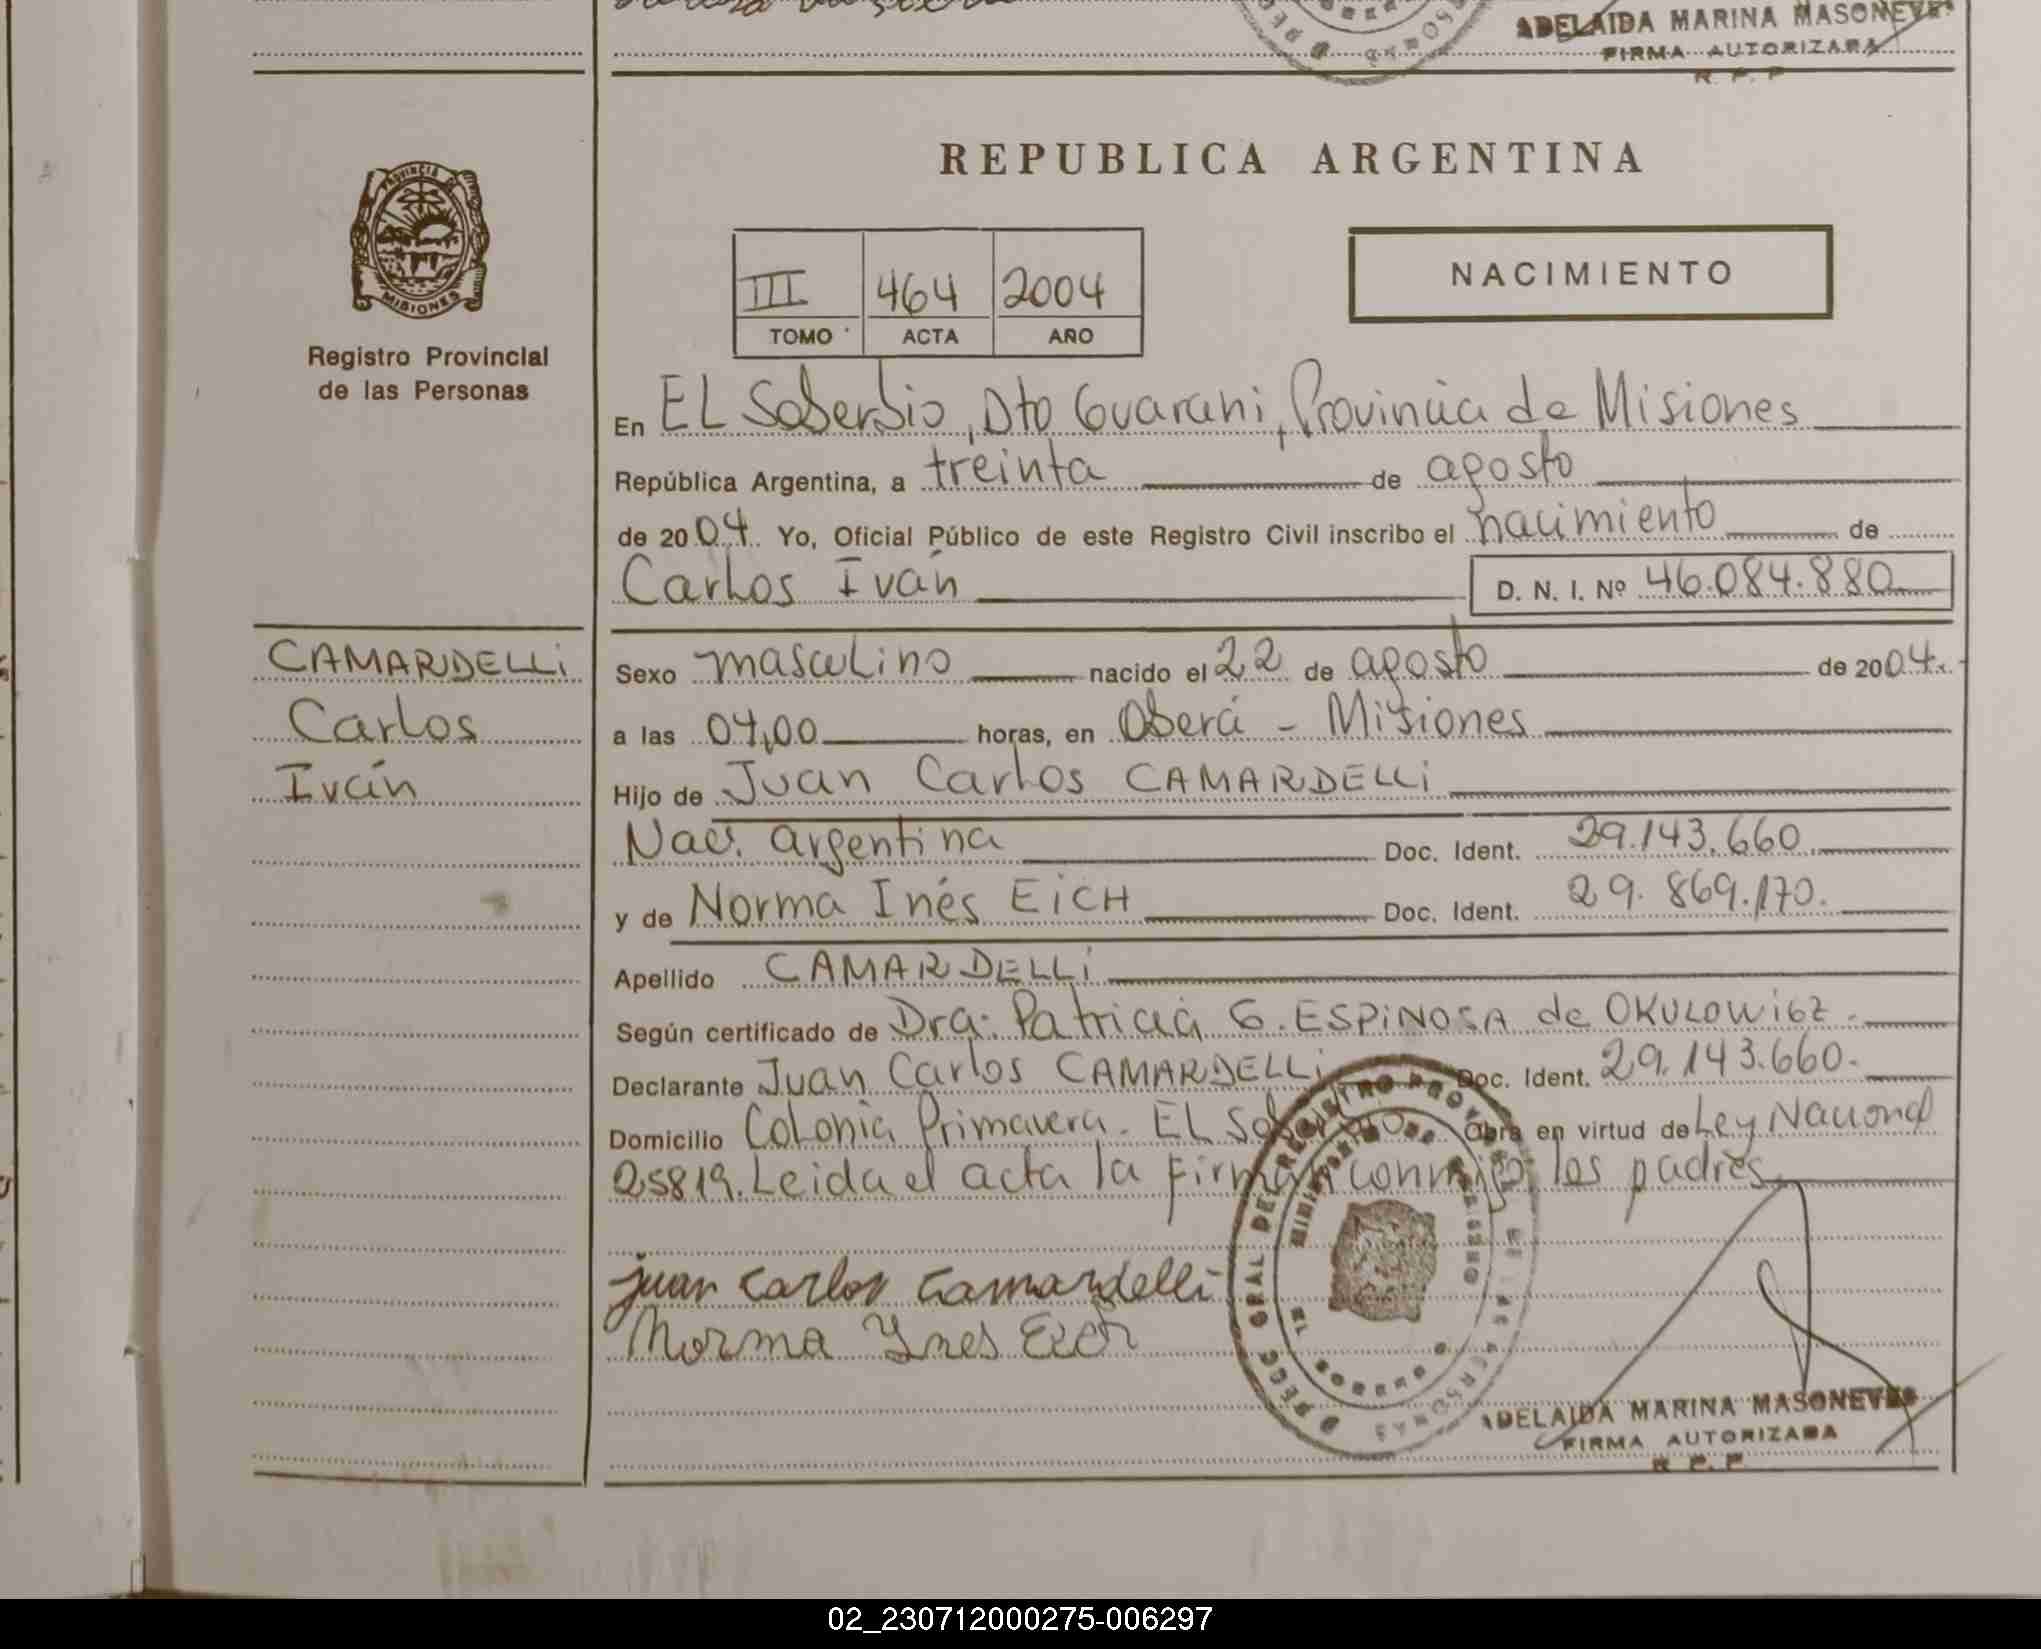 ADELAIDA MARINA MASONEVES
FIRMA AUTORIZADA
R. P. P
PROVINCIA DE
MISIONES
Registro Provincial
de las Personas
REPUBLICA ARGENTINA
III 464 2004
TOMO ACTA AÑO
NACIMIENTO
En EL Soberbio, Dto Guarani, Provincia de Misiones
República Argentina, a treinta de agosto
de 2004. Yo, Oficial Público de este Registro Civil inscribo el nacimiento de
Carlos Iván D. N. I. Nº 46.084.880
CAMARDELLi
Carlos
Iván
Sexo masculino nacido el 22 de agosto de 2004.
a las 04,00 horas, en Oberá - Misiones
Hijo de Juan Carlos CAMARDELLi
Nac. argentina Doc. Ident. 29.143.660
y de Norma Inés EiCH Doc. Ident. 29.869.170.
Apellido CAMARDELLi
Según certificado de Dra. Patricia G. ESPiNOSA de OKULOWicz.
Declarante Juan Carlos CAMARDELLi Doc. Ident. 29.143.660.
Domicilio Colonia Primavera - EL Soberbio Obra en virtud de Ley Nacional
25819. Leida el acta la firman conmigo los padres
Juan Carlos Camardelli
Norma Ynes Eich
DIRECC GRAL DEL REGISTRO PROVINCIAL DE LAS PERSONAS
MINISTERIO DE GOBIERNO
ADELAIDA MARINA MASONEVES
FIRMA AUTORIZADA
R. P. P
02_230712000275-006297